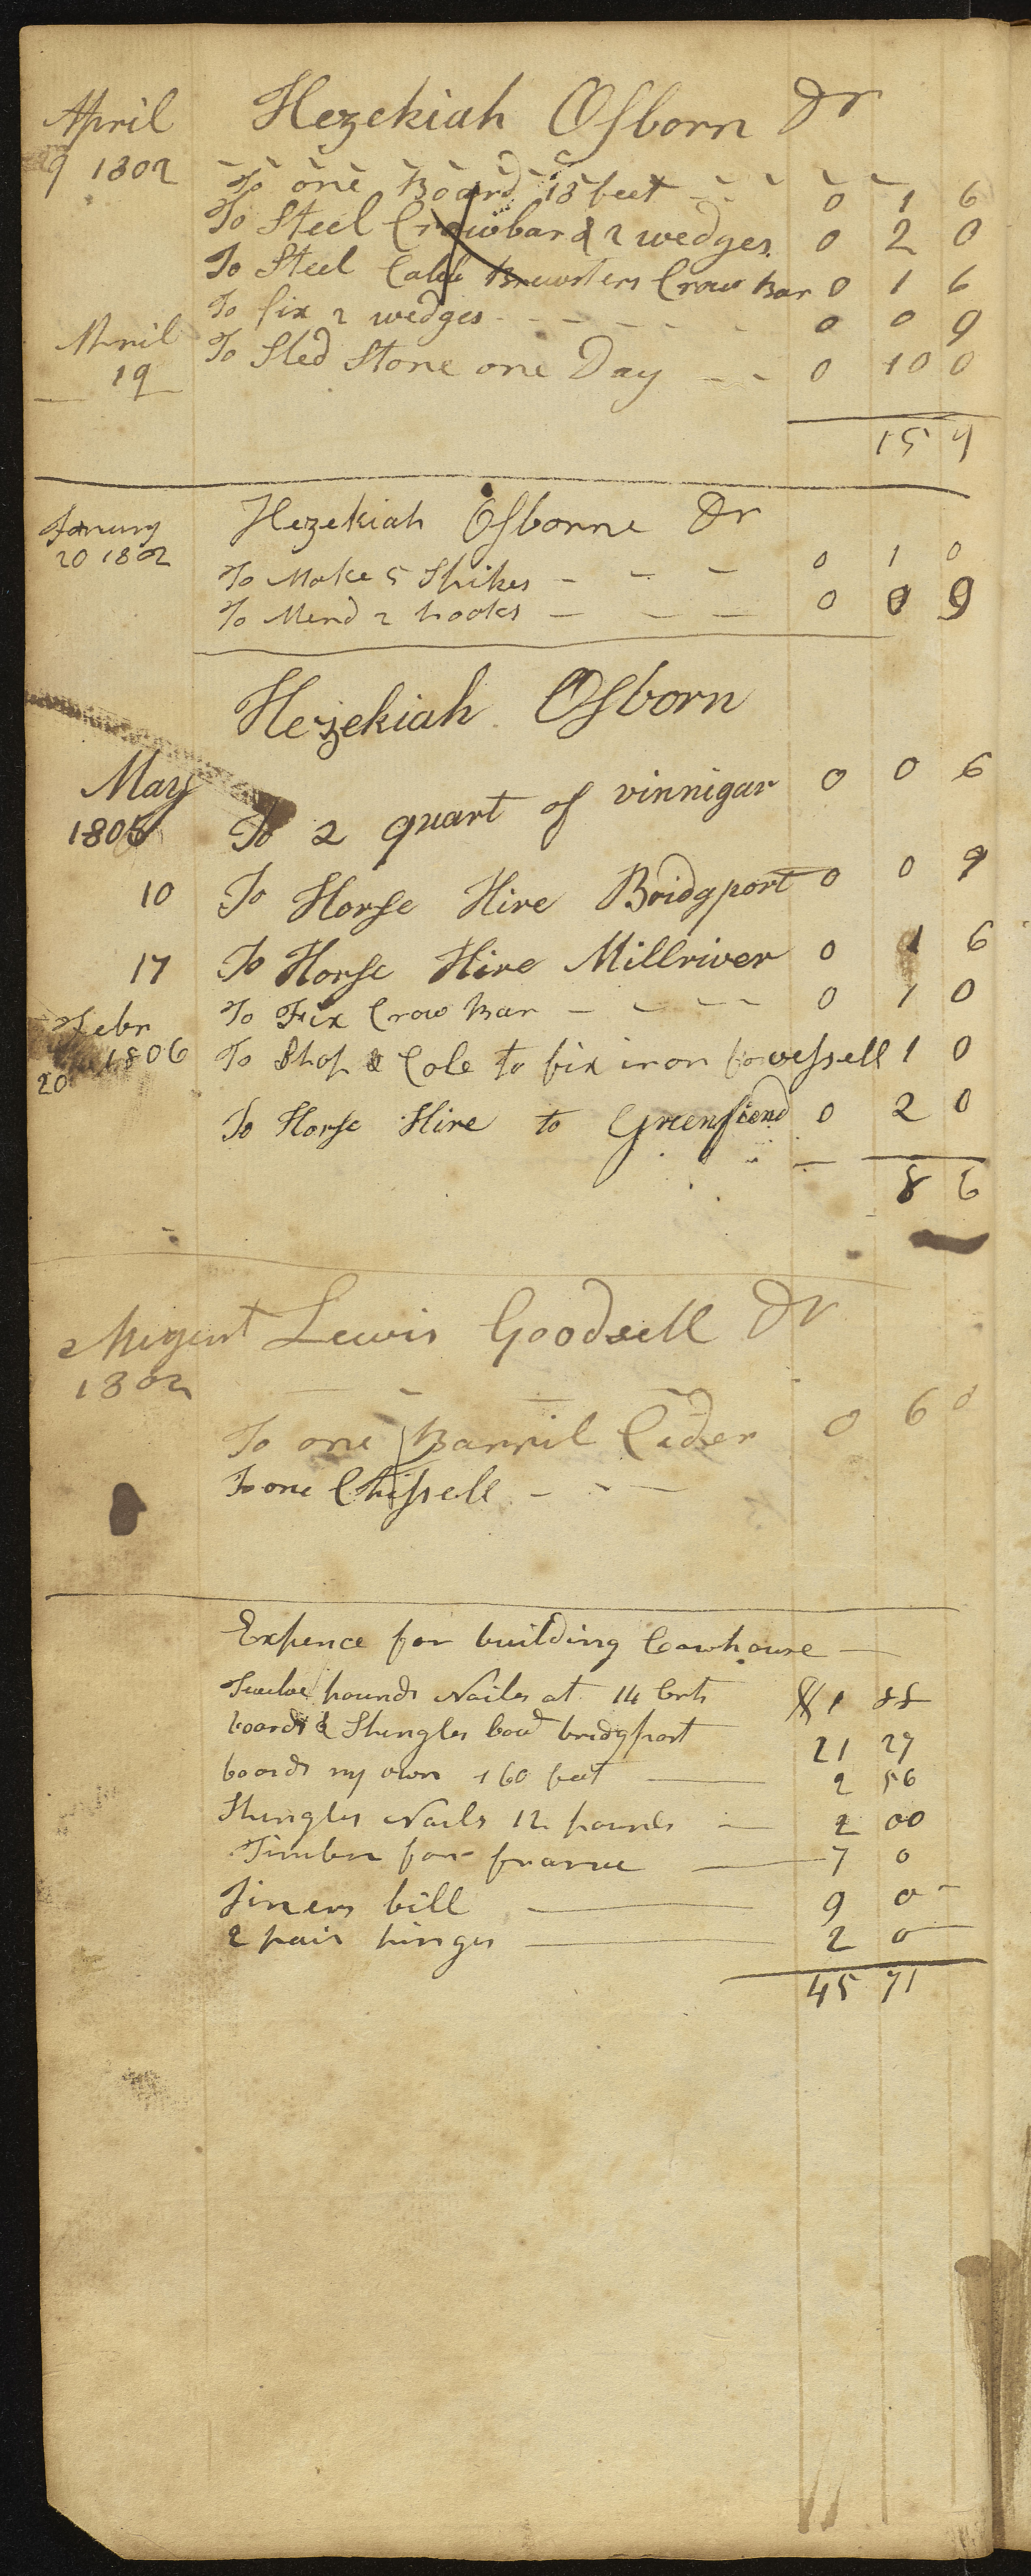 April Hezekiah Osborn Dr
9 1802
To one Board 18 feet 0 1 6
To Steel Crowbar & 2 wedges 0 2 0
To Steel Caleb Brewsters Crow Bar 0 1 6
To fix 2 wedges 0 0 9
April 19 To Sled Stone one Day 0 10 0
15 9
Janury Hezekiah Osborne Dr
20 1802
To Make 5 Spikes 0 1 0
To Mend 2 hooks 0 0 9
Hezekiah Osborn
May
1805 To 2 quart of vinnigar 0 0 6
10 To Horse Hire Bridgport 0 0 9
17 To Horse Hire Millriver 0 1 6
Febr To Fix Crow Bar 0 1 0
20 1806 To Shop & Cole to fix iron for vessell 1 0
To Horse Hire to Greenfiend 0 2 0
8 6
August Lewis Goodsell Dr
1802
To one Barril Cider 0 6 0
To one Chissell
Expence for building Cowhouse
Twelve pounds Nailes at 14 Cents $1 88
boards & Shingles bout bridgport 21 27
boards my own 160 feet 2 56
Shingles Nails 12 pounds 2 00
Timber for frame 7 0
Jiners bill 9 0
2 pair hinges 2 0
45 71